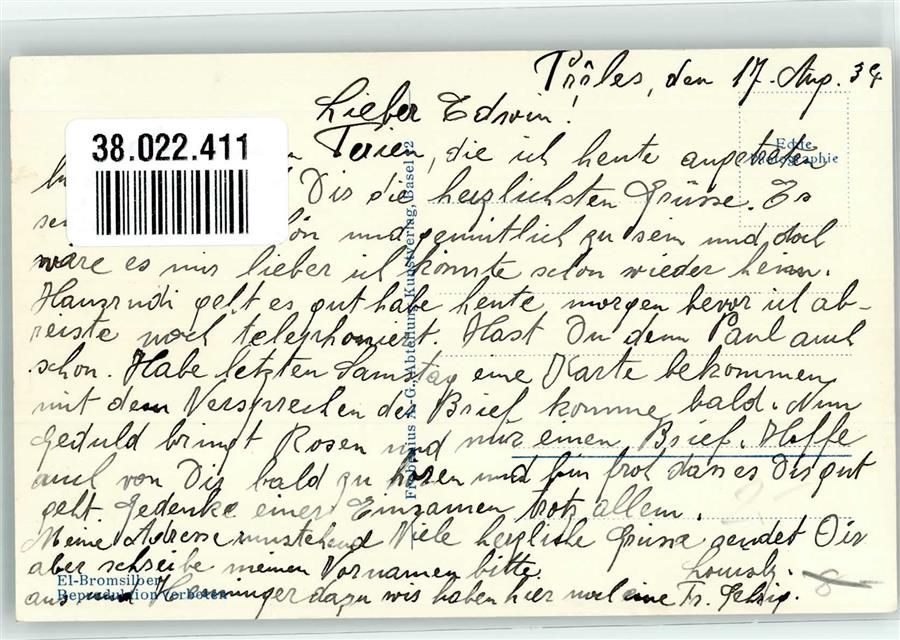 den 17. Aug. 34
Lieber Edwin!
38.022.411
Ferien, die ich heute angetreten
Echte
Photographie
Dir die herzlichsten Grüsse. Es
und gemütlich zu sein und doch
wäre es mir lieber ich könnte schon wieder heim.
Hansruedi geht es gut habe heute morgen bevor ich ab-
reiste noch telephoniert. Hast Du denn Paul auch
schon. Habe letzten Samstag eine Karte bekommen
mit dem Versprechen der Brief komme bald. Nun
Geduld bringt Rosen und mir einen Brief. Hoffe
auch von Dir bald zu hören und bin froh dass es Dir gut
geht. Gedenke einer Einsamen trotz allem.
Meine Adresse umstehend Viele herzliche Grüsse sendet Dir
aber schreibe meinen Vornamen bitte.
dazu wir haben hier noch eine Fr.
Frobenius A.-G., Abteilung Kunstverlag, Basel 12
El-Bromsilber
Reproduktion verboten